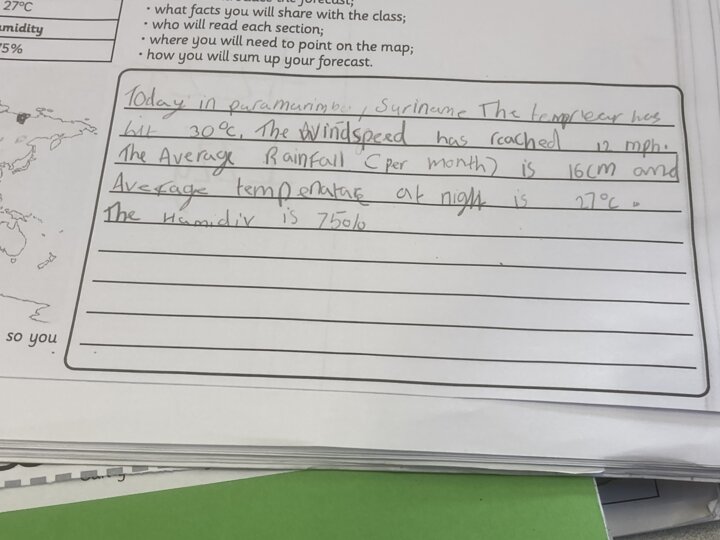 27°C
midity
75%
• what facts you will share with the class;
• who will read each section;
• where you will need to point on the map;
• how you will sum up your forecast.
Today in paramarimbo, Suriname The temprear has
hit 30°C. The Windspeed has reached 12 mph.
The Average Rainfall (per month) is 16cm and
Average tempenatare at night is 27°C.
The Humidiv is 75%
so you